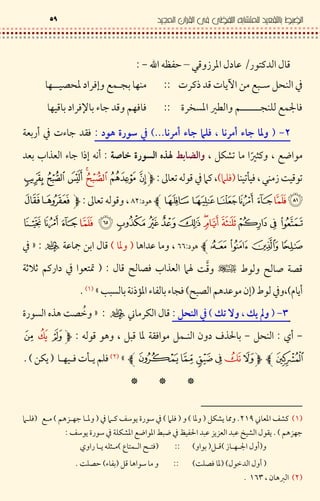 الضبط بالتقعيد للمتشابه اللفظي في القرآن المجيد
٥٩
قال الدكتور/ عادل المرزوقي – حفظه الله : -
في النحل سبع من الآيات قد ذكرت :: منها بجمع وإفراد لمحصيها
فاجمع للنجم والطير المسخرة :: فافهم وقد جاء بالإفراد باقيها
٢- ( ولما جاء أمرنا ، فلما جاء أمرنا...) في سورة هود : فقد جاءت في أربعة
مواضع ، وكثيرًا ما تشكل ، والضابط لهذه السورة خاصة : أنه إذا جاء العذاب بعد
توقيت زمني، فيأتينا (فلما)، كما في قوله تعالى : ﴿ إِنَّ مَوْعِدَهُمُ الصُّبْحُ أَلَيْسَ الصُّبْحُ بِقَرِيبٍ
٨١ فَلَمَّا جَاءَ أَمْرُنَا جَعَلْنَا عَالِيَهَا سَافِلَهَا ﴾ هود:٨٢ ، وقوله تعالى : ﴿ فَعَقَرُوهَا فَقَالَ
تَمَتَّعُوا فِي دَارِكُمْ ثَلَاثَةَ أَيَّامٍ ذَلِكَ وَعْدٌ غَيْرُ مَكْذُوبٍ ٦٥ فَلَمَّا جَاءَ أَمْرُنَا نَجَّيْنَا
صَالِحًا وَالَّذِينَ آمَنُوا مَعَهُ ﴾ هود:٦٦ ، وما عداها ( ولما ) قال ابن جماعة : « في
قصة صالح ولوط وقَّت لهما العذاب فصالح قال : ( تمتعوا في داركم ثلاثة
أيام)، وفي لوط (إن موعدهم الصبح) فجاء بالفاء المؤذنة بالسبب » (١) .
٣- ( ولم يك ، ولا تك ) في النحل : قال الكرماني : « وخُصت هذه السورة
- أي : النحل - بالحذف دون النمل موافقة لما قبل ، وهو قوله : ﴿ وَلَمْ يَكُ مِنَ
الْمُشْرِكِينَ ﴾ ﴿ وَلَا تَكُ فِي ضَيْقٍ مِمَّا يَمْكُرُونَ ﴾ » (٢) فلم يأت فيها ( يكن ) .
* * *
(١) كشف المعاني ٢١٩. ومما يشكل ( ولما ) و ( فلما ) في سورة يوسف كما في ( ولما جهزهم ) مع (فلما
جهزهم ) . يقول الشيخ عبد العزيز عبد الحفيظ في ضبط المواضع المشكلة في سورة يوسف :
و(أول الجهاز) قل( بواو) :: (فتح المتاع )مثله يا راوي
( أول الدخول) (لما فصلت) :: و ما سواها قل (بفاء) حصلت .
(٢) البرهان ، ١٦٣ .